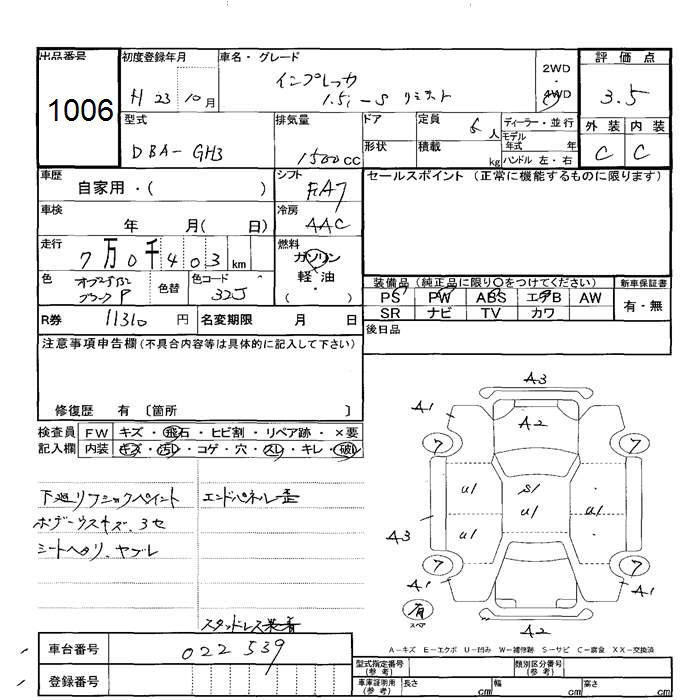 出品番号
1006
初度登録年月
H 23 10月
車名・グレード
インプレッサ
1.5i-S リミテット
2WD
4WD
評価点
3.5
外装 内装
C C
型式
DBA-GH3
排気量
1500cc
ドア
形状
定員 5人
積載 kg
ディーラー・並行
モデル年式 年
ハンドル 左・右
車歴
自家用・( )
シフト
FA7
セールスポイント(正常に機能するものに限ります)
車検
年 月( 日)
冷房
AAC
走行
7万0千403km
燃料
ガソリン
軽油
( ・ )
色
ブラックP
色替
色コード
32J
装備品(純正品に限り○をつけてください)
新車保証書
PS PW ABS エアB AW
SR ナビ TV カワ
有・無
R券 11310円
名変期限 月 日
後日品
注意事項申告欄(不具合内容等は具体的に記入して下さい)
修復歴 有 〔箇所 〕
検査員 FW キズ・飛石・ヒビ割・リペア跡・×要
記入欄 内装 キズ・汚れ・コゲ・穴・スレ・キレ・破れ
下廻リフックペイント
エンドパネル歪
ボデーウスキズ、3セ
シートヘタリ、ヤブレ
スタットレス装着
A3
A1
A2
7 7
U1 S1
U1 U1
U1
A3
7 7
A1 A1
有
スペア
A2
A-キズ E-エクボ U-凹み W-補修跡 S-サビ C-腐食 XX-交換済
車台番号
022539
登録番号
型式指定番号(参考)
類別区分番号(参考)
車庫証明用(参考)
長さ cm 幅 cm 高さ cm